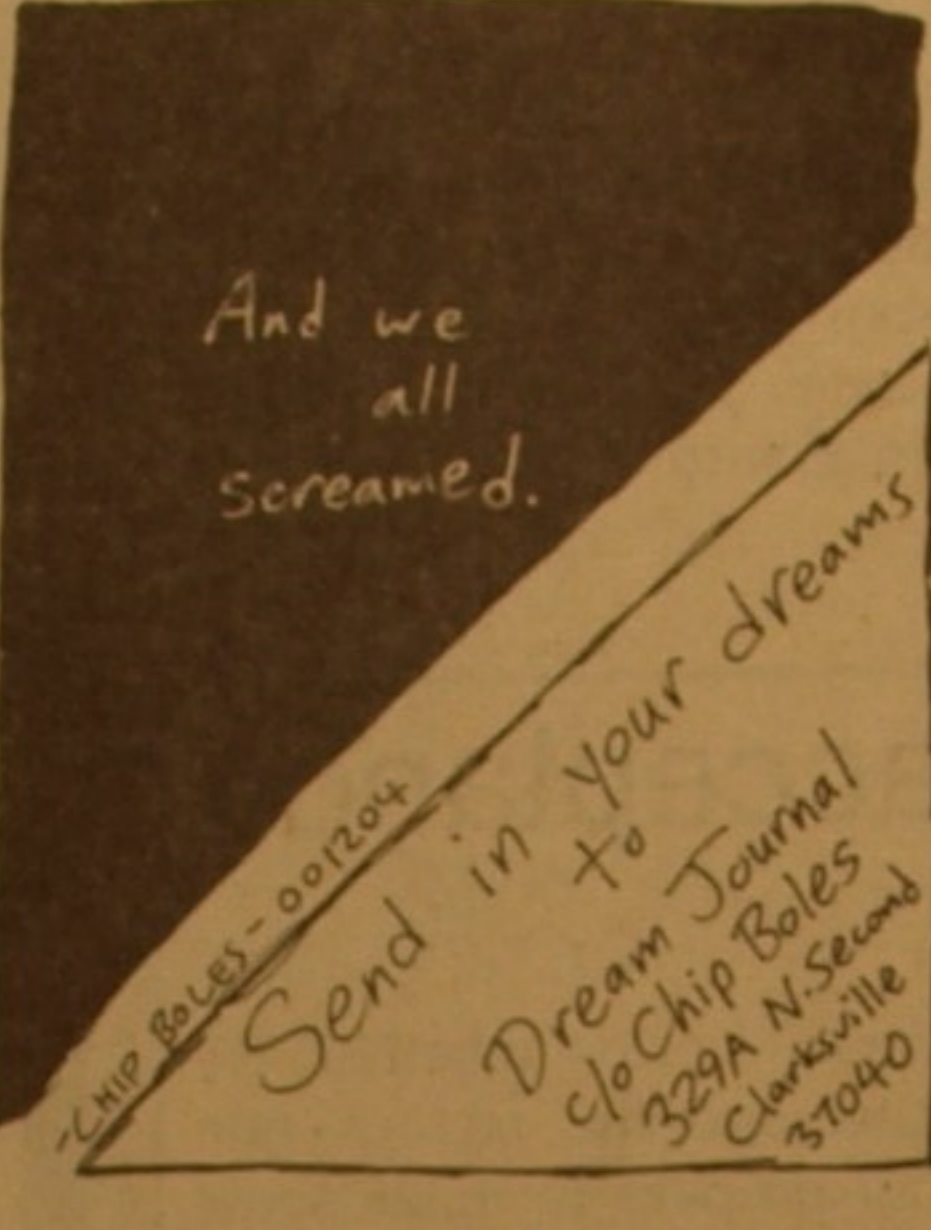 And we
all
screamed.
-CHIP BOLES-001204
Send in your dreams
to
Dream Journal
c/o Chip Boles
329A N. Second
Clarksville
37040